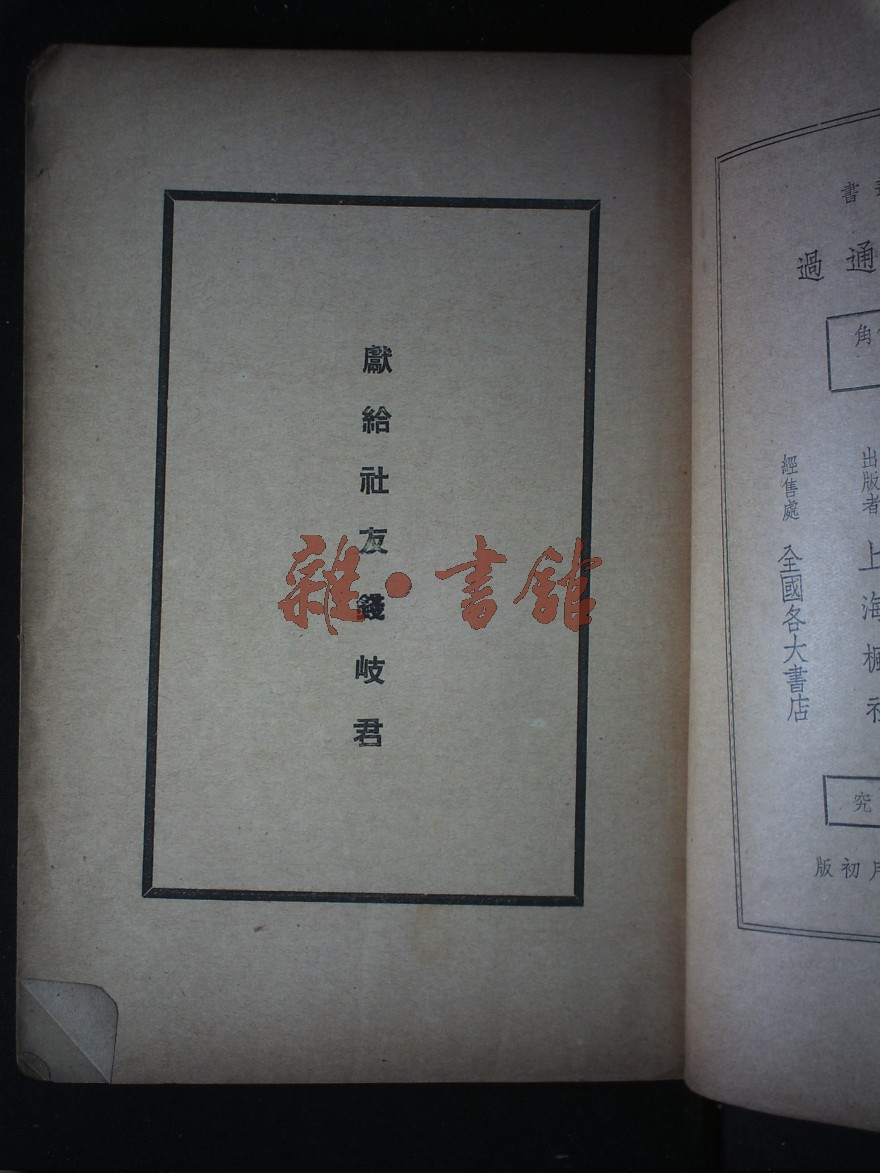 獻給社友錢岐君
雜·書館
書
通過
角
出版者 上海楓社
經售處 全國各大書店
究
月初版